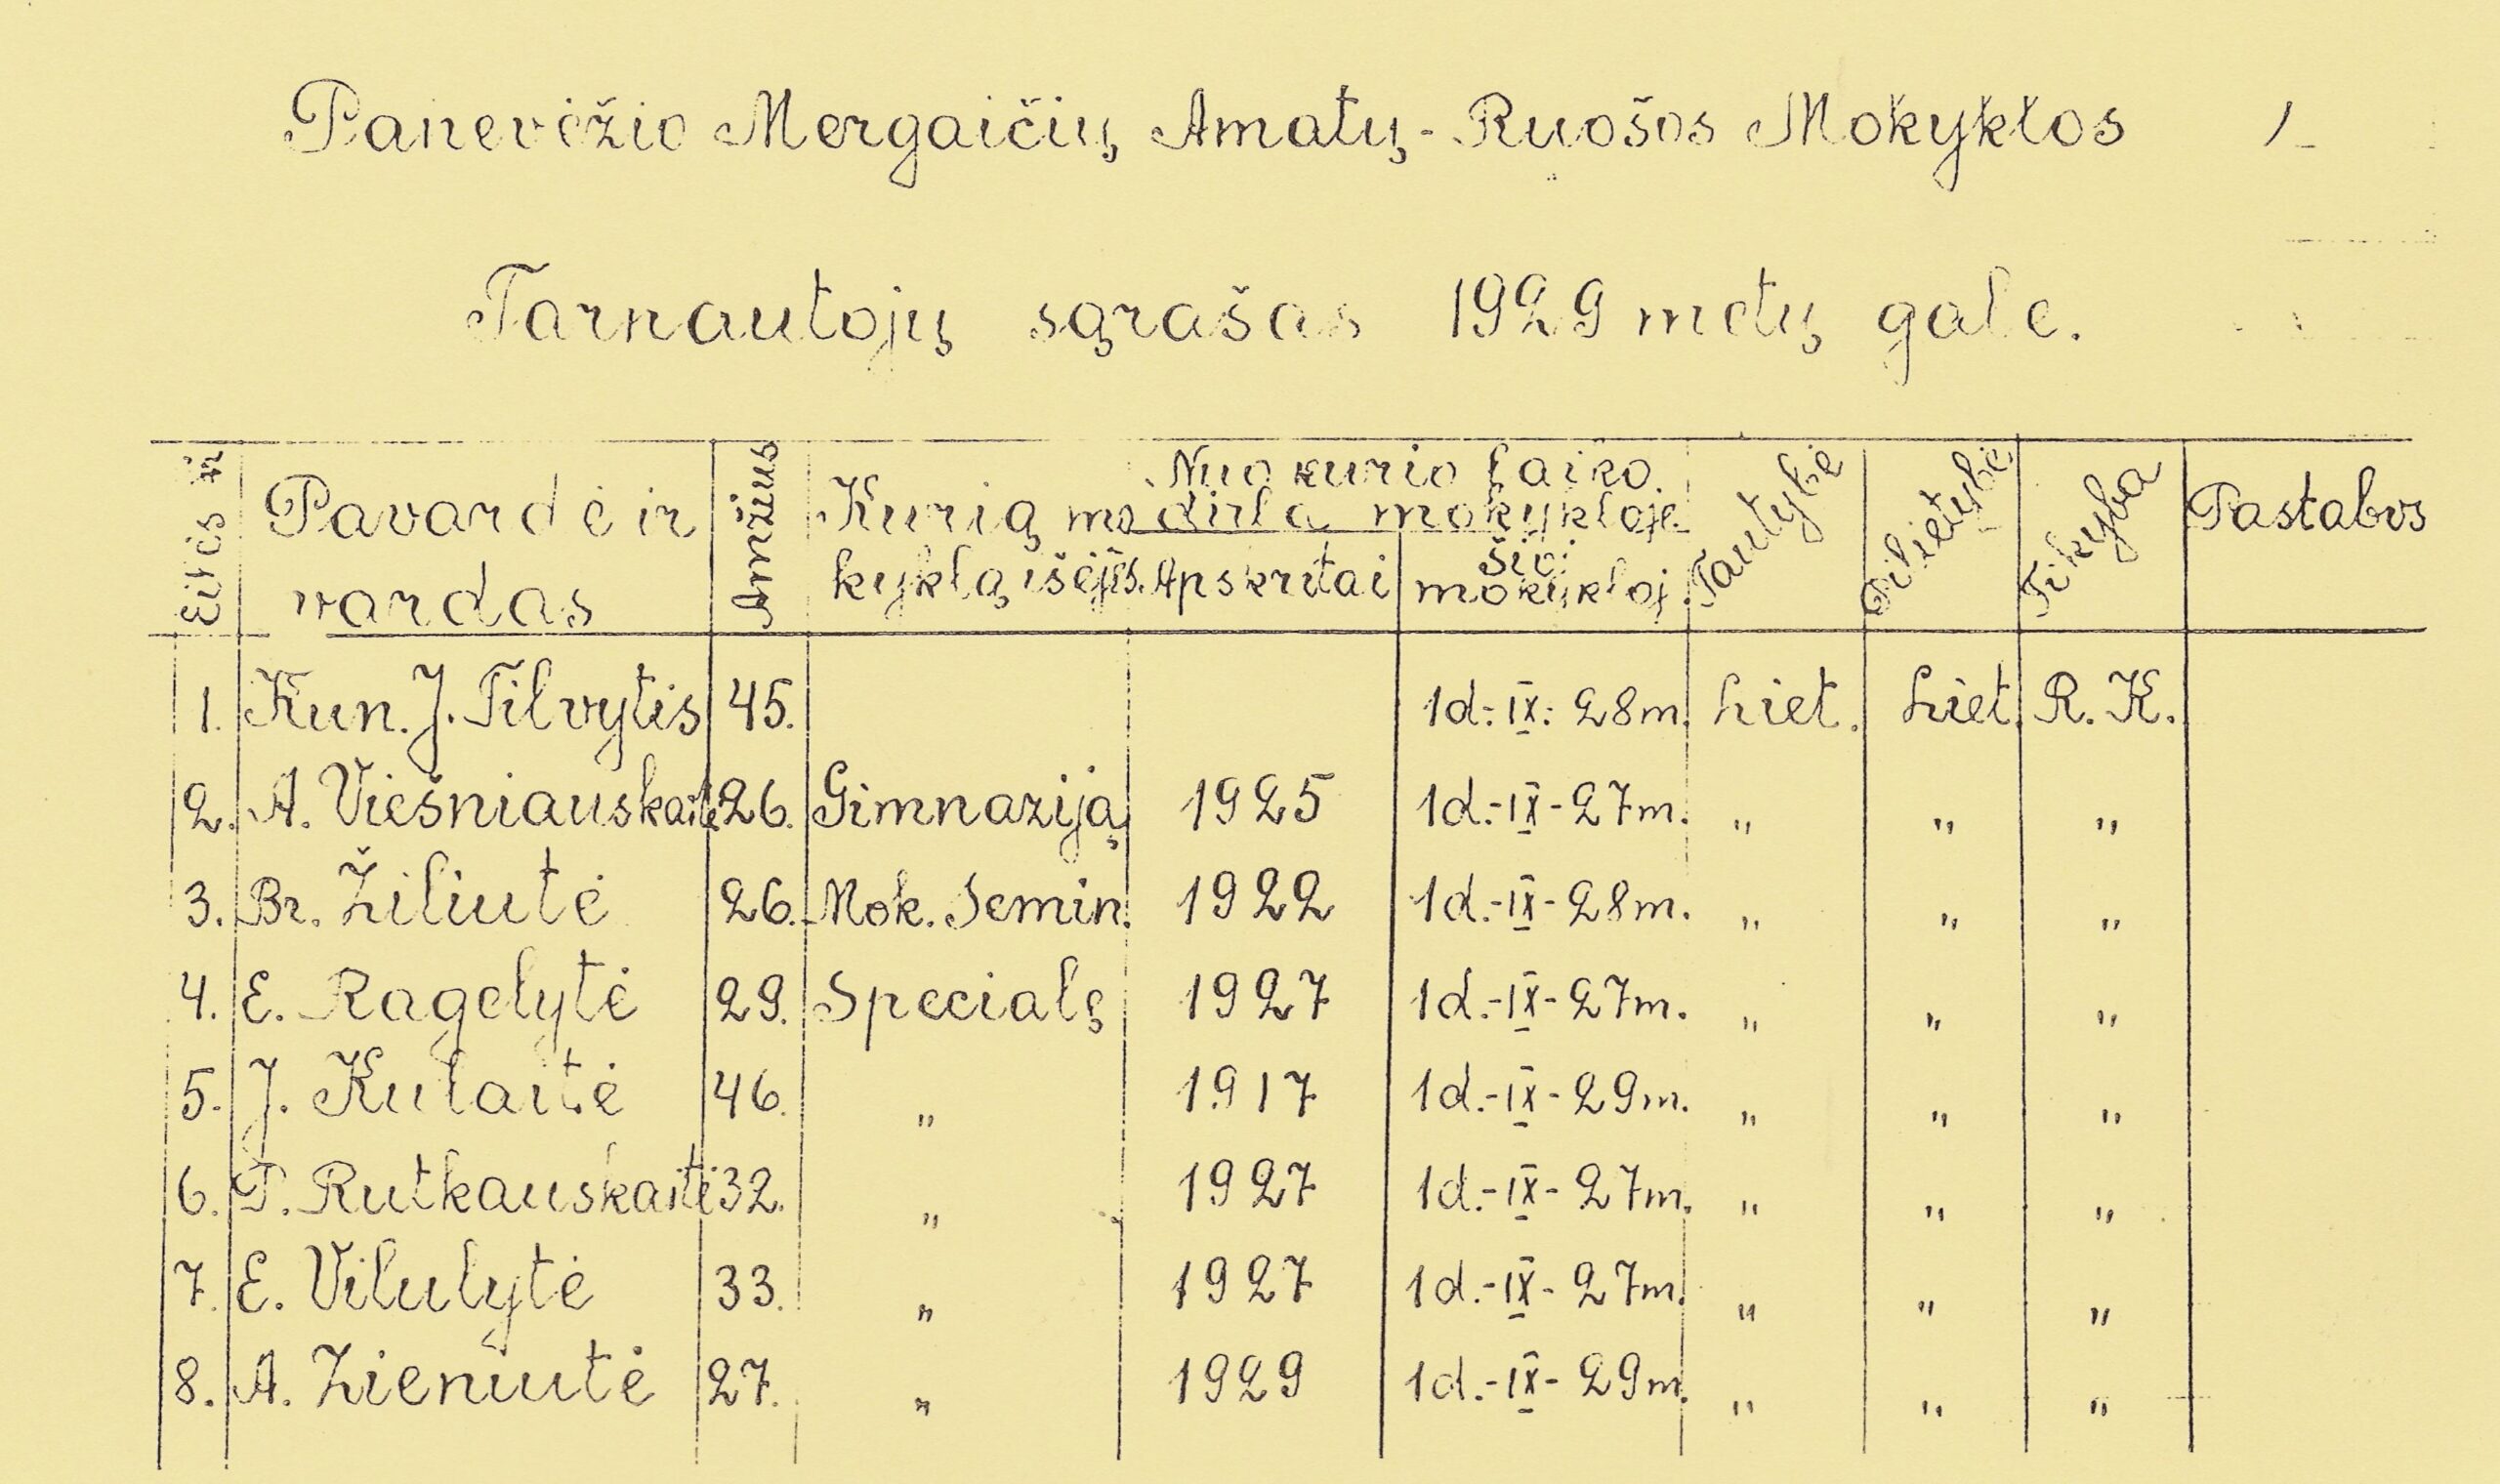 Panevėžio Mergaičių Amatų-Ruošos Mokyklos
Tarnautojų sąrašas 1929 metų gale.
Eilės № Pavardė ir vardas Amžius Kurią mokyklą išėjęs. Nuo kurio laiko dirba mokykloje. Apskritai Šioj mokykloj. Tautybė Pilietybė Tikyba Pastabos
1. Kun. J. Tilvytis 45. 1d.-IX-28m. Liet. Liet. R. K.
2. A. Viešniauskaitė 26. Gimnaziją 1925 1d.-IX-27m. „ „ „
3. Br. Žiliutė 26. Mok. Semin. 1922 1d.-IX-28m. „ „ „
4. E. Ragelytė 29. Specialę 1927 1d.-IX-27m. „ „ „
5. J. Kulaitė 46. „ 1917 1d.-IX-29m. „ „ „
6. P. Rutkauskaitė 32. „ 1927 1d.-IX-27m. „ „ „
7. E. Vilulytė 33. „ 1927 1d.-IX-27m. „ „ „
8. A. Zieniutė 27. „ 1929 1d.-IX-29m. „ „ „